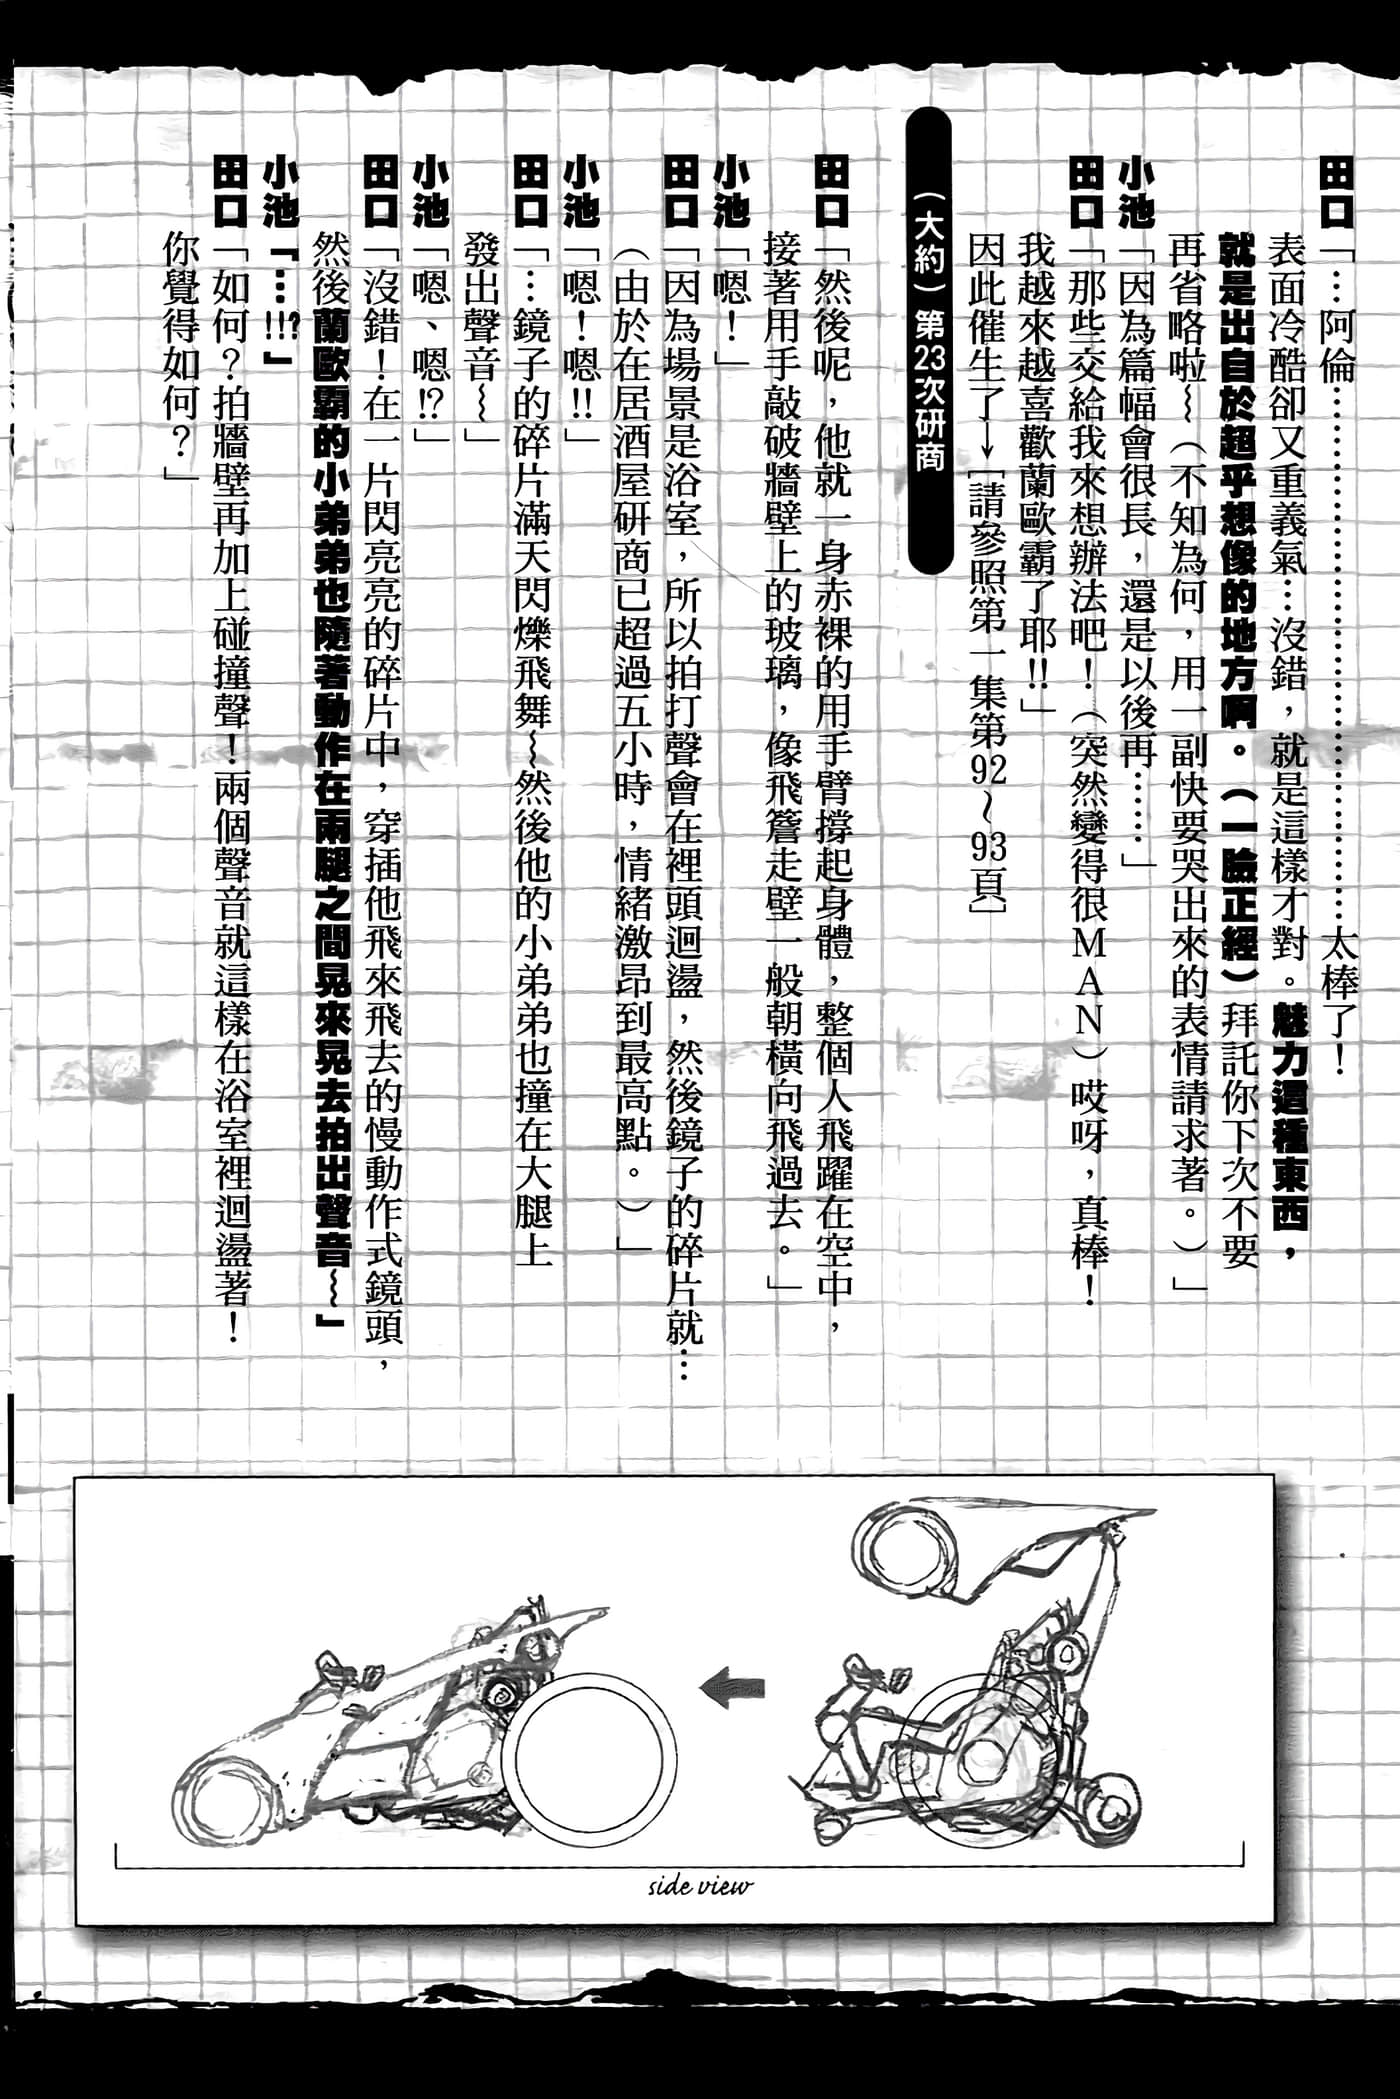 田口「…阿倫……………………………………………太棒了！
表面冷酷卻又重義氣…沒錯，就是這樣才對。魅力這種東西，
就是出自於超乎想像的地方啊。（一臉正經）拜託你下次不要
再省略啦～（不知為何，用一副快要哭出來的表情請求著。）」
小池「因為篇幅會很長，還是以後再……」
田口「那些交給我來想辦法吧！（突然變得很MAN）哎呀，真棒！
我越來越喜歡蘭歐霸了耶!!」
因此催生了→［請參照第一集第92～93頁］
（大約）第23次研商
田口「然後呢，他就一身赤裸的用手臂撐起身體，整個人飛躍在空中，
接著用手敲破牆壁上的玻璃，像飛簷走壁一般朝橫向飛過去。」
小池「嗯！」
田口「因為場景是浴室，所以拍打聲會在裡頭迴盪，然後鏡子的碎片就…
（由於在居酒屋研商已超過五小時，情緒激昂到最高點。）」
小池「嗯！嗯!!」
田口「…鏡子的碎片滿天閃爍飛舞～然後他的小弟弟也撞在大腿上
發出聲音～」
小池「嗯、嗯!?」
田口「沒錯！在一片閃亮亮的碎片中，穿插他飛來飛去的慢動作式鏡頭，
然後蘭歐霸的小弟弟也隨著動作在兩腿之間晃來晃去拍出聲音～」
小池「…!!?」
田口「如何？拍牆壁再加上碰撞聲！兩個聲音就這樣在浴室裡迴盪著！
你覺得如何？」
side view